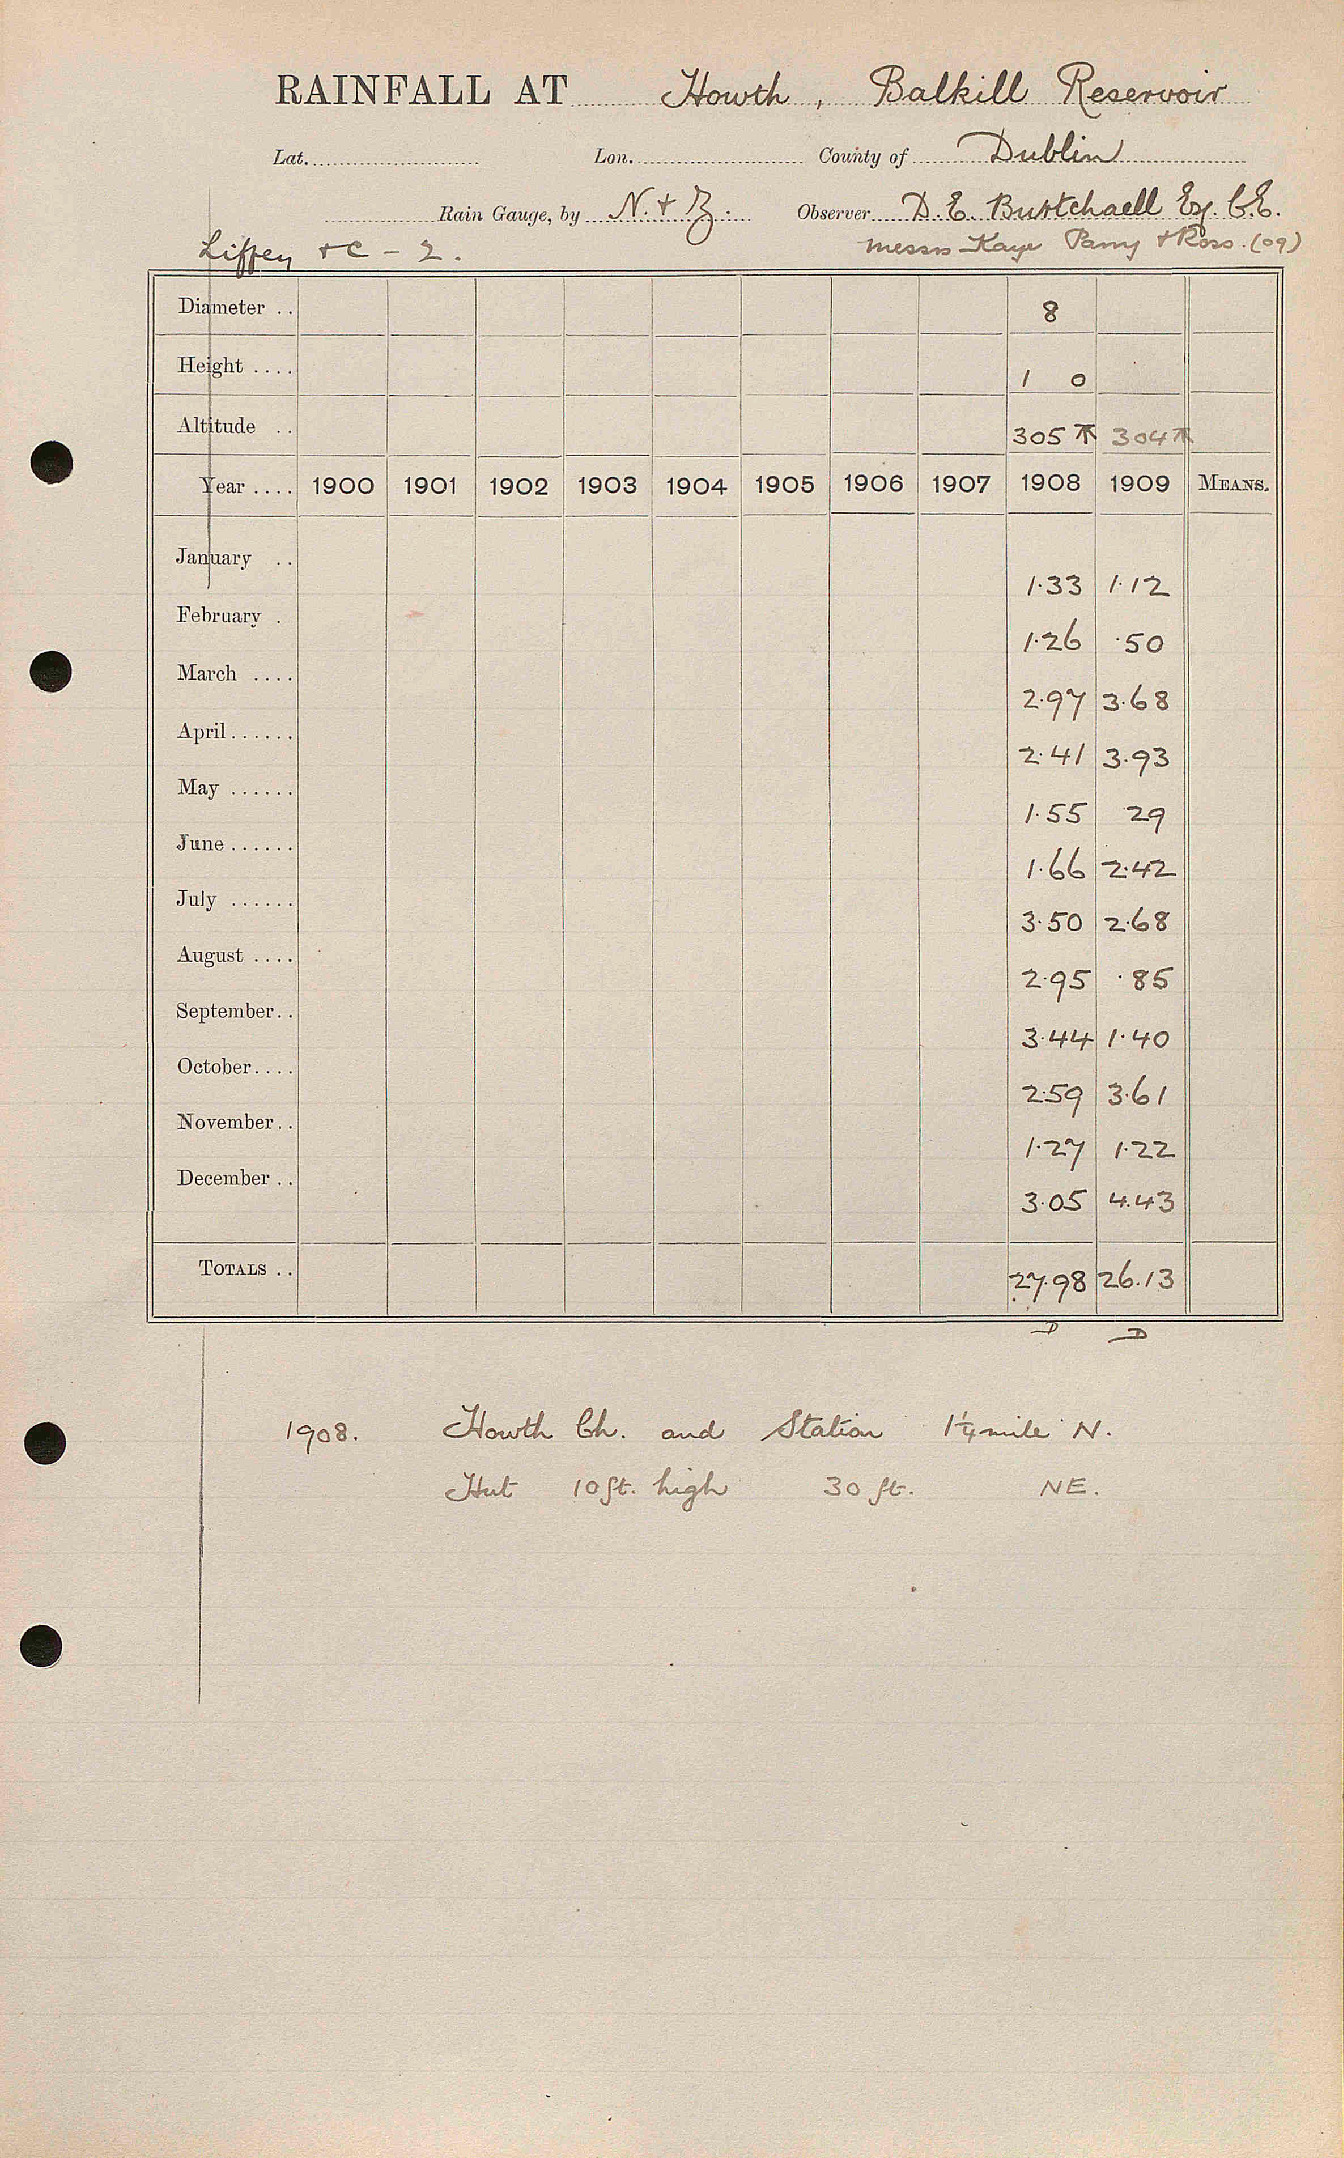 RAINFALL AT Howth, Balkill Reservoir
Lat. Lon. County of Dublin
Rain Gauge, by N. & Z. Observer D. E. Burtchaell Esq. C.E.
Liffey & C - 2. Messrs Kaye Parry & Ross. (09)
Diameter .. 8
Height .... 1 0
Altitude .. 305 304
Year .... 1900 1901 1902 1903 1904 1905 1906 1907 1908 1909 MEANS.
January .. 1.33 1.12
February . 1.26 .50
March .... 2.97 3.68
April...... 2.41 3.93
May ...... 1.55 29
June...... 1.66 2.42
July ...... 3.50 2.68
August .... 2.95 .85
September.. 3.44 1.40
October.... 2.59 3.61
November.. 1.27 1.22
December .. 3.05 4.43
TOTALS .. 27.98 26.13
D D
1908. Howth Ch. and Station 1¼ mile N.
Hut 10ft. high 30 ft. NE.